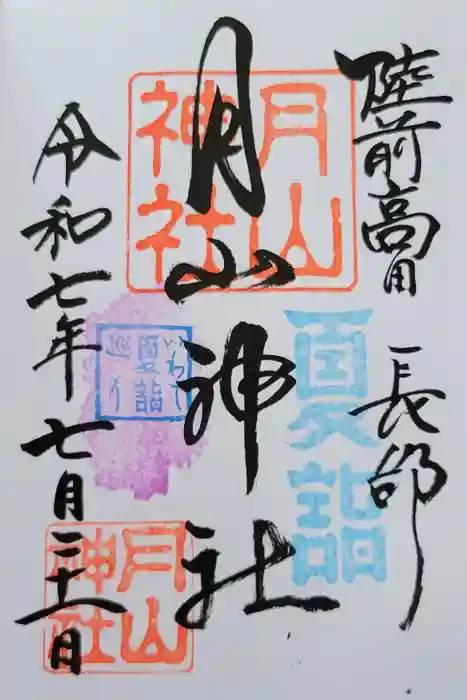 陸前高田 長部
月山神社
令和七年七月二十一日
月山
神社
夏詣
いわて
夏詣
巡り
月山
神社